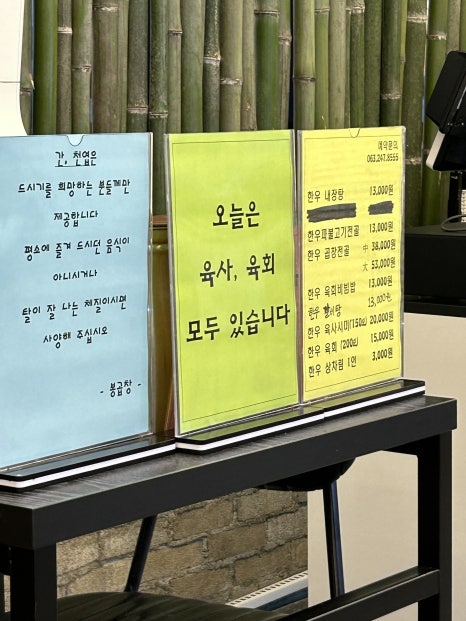 간, 천엽은
드시기를 희망하는 분들께만
제공합니다
평소에 즐겨 드시던 음식이
아니시거나
탈이 잘 나는 체질이시면
사양해 주십시오
- 봉곱창 -
오늘은
육사, 육회
모두 있습니다
예약문의
063.247.8555
한우 내장탕 13,000원
한우파불고기전골 13,000원
한우 곱창전골 中 38,000원
大 53,000원
한우 육회비빔밥 13,000원
한우 탕 13,000원
한우 육사시미(150g) 20,000원
한우 육회 (200g) 15,000원
한우 상차림 1인 3,000원